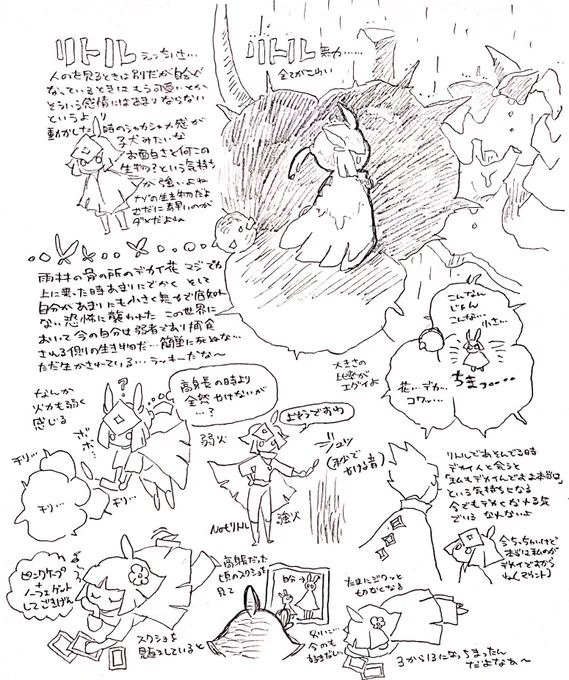 リトル えっちいさ…
人のを見るときは別だが自分で
なっているときはもう可愛いとか
そういう感情にはあまりならない
というより
動かした時のシャカシャカ感が
子犬みたいな
お面白さと何この
生き物?という気持ち
が強いよね
ナゾの生き物だよ
ダメだよね
リトル 無力……
全てがこわい
雨林の骨の所のデカイ花 マジでか
上に乗った時あまりにでかく そして
自分があまりにも小さく無力で底知れ
ない恐怖に襲われた この世界に
おいて今の自分は弱者であり捕食
される側の生き物だ…簡単に死ぬな…
ただ生かされている…ラッキーだな〜
大きさの
比率が
エグイよ
こんなん
じゃん
こんな…
小さ…
ちまっ……
花…デカ…
コワッ…
なんか
火力も弱く
感じる
?
ボ
ボ…
チリ…
チリ…
チリ…
高身長の時より
全然やけないが
…?
弱火
よゆうですわ
ジュッ
(秒で
やける音)
Notリトル
強火
リトルであそんでる時
デカイ人と会うと
「私もデカイんですよ本当は」
という気持ちになる
今でもデカくなってる気
でいる なれないよ
今ちっちゃいけど
本当は私のが
デカイですから
ね(マウント)
ピンクケープ
+
ノーフェゲント
してごきげん
♪
スクショを
見返していると
高身長だった
ときのスクショを
見て
昨今→
たまにジワッと
ものかなしくなる
3から13になっちまったん
だよなぁ〜